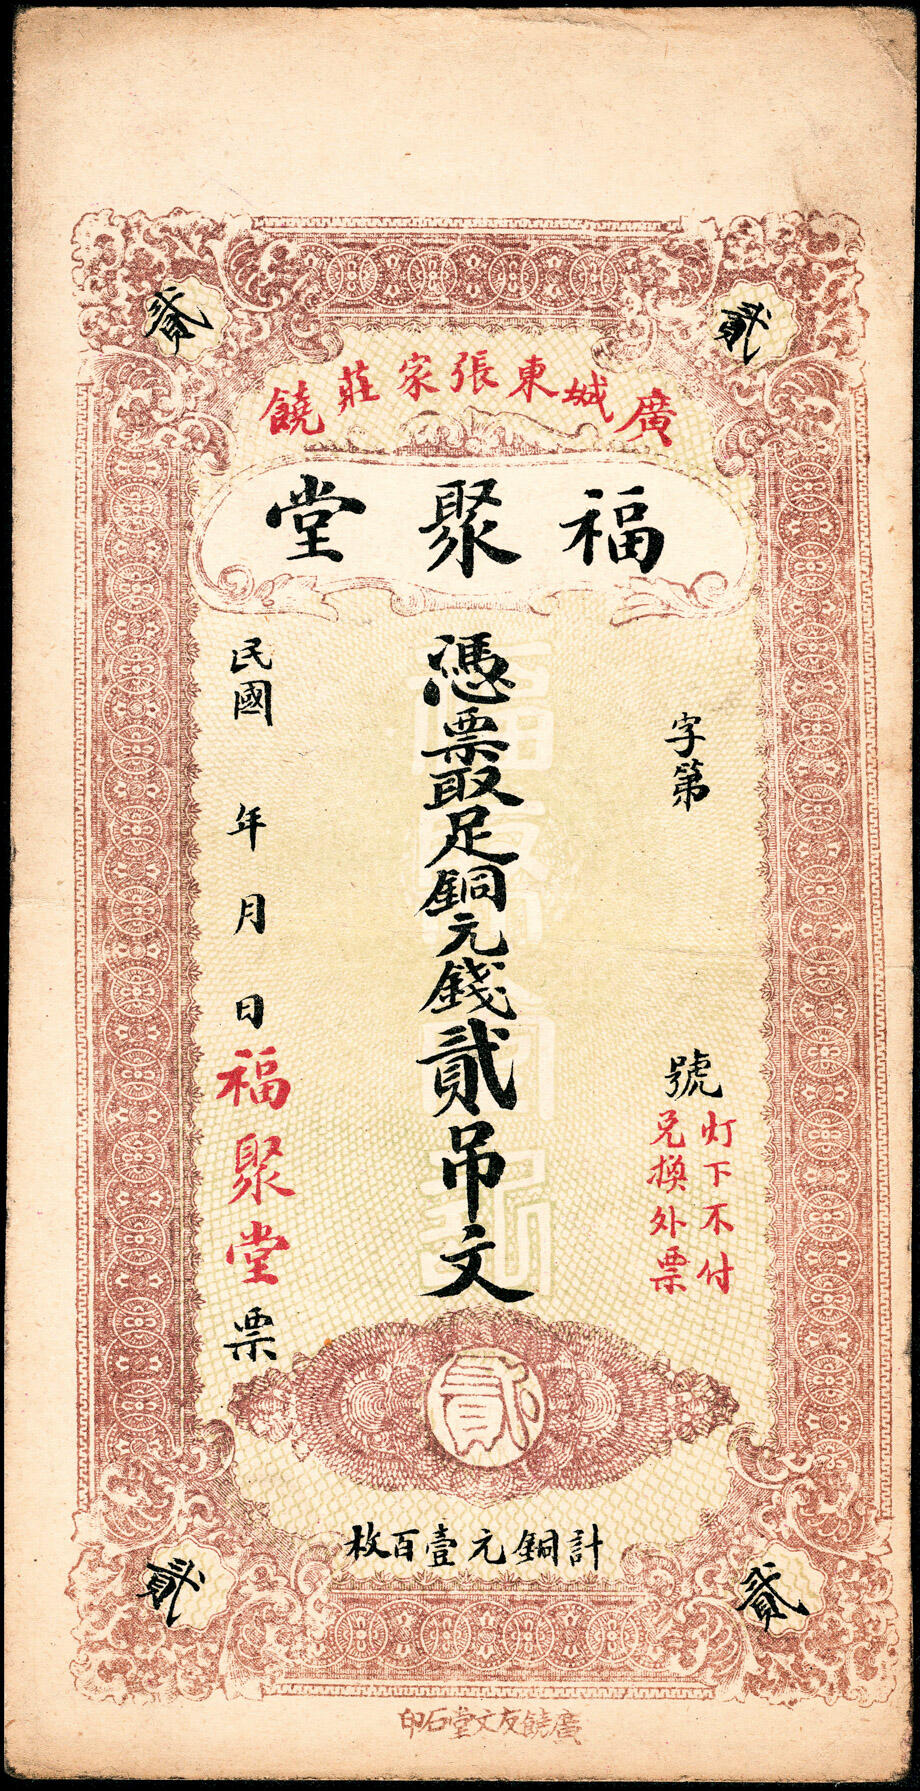 貳
貳
廣饒城東張家莊
福聚堂
字第 號
灯下不付
兌換外票
憑票取足銅元錢貳吊文
民國 年 月 日福聚堂票
貳
計銅元壹百枚
貳
貳
廣饒友文堂石印